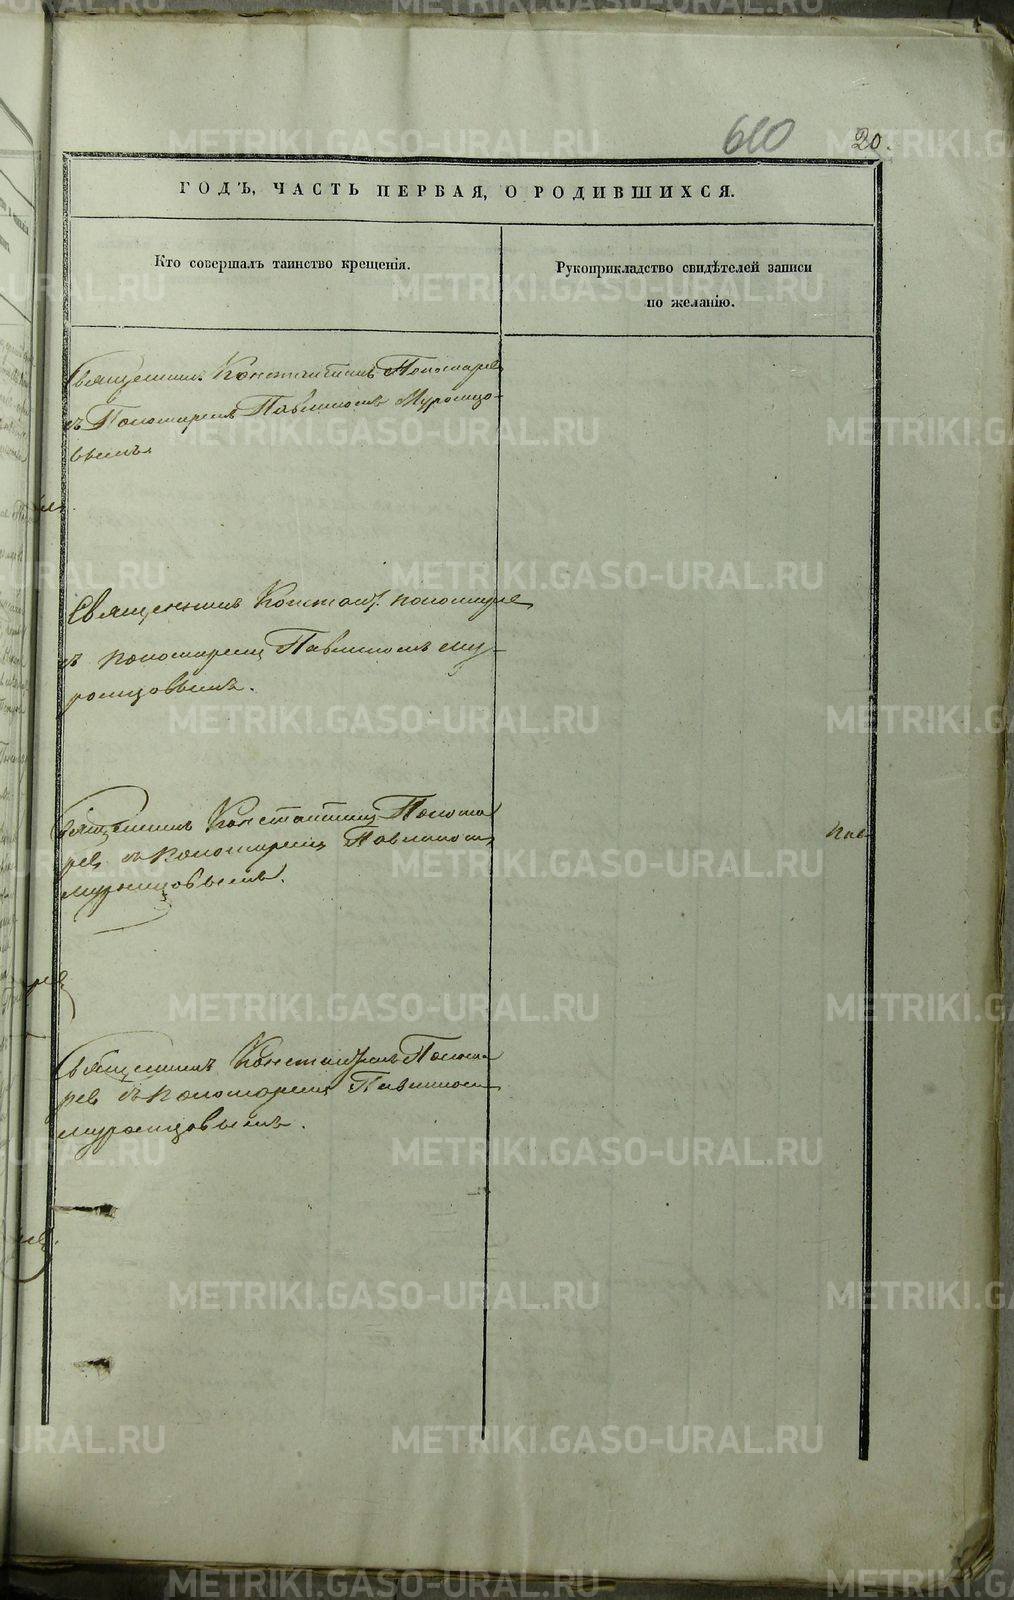 610
20.
ГОДЪ, ЧАСТЬ ПЕРВАЯ, О РОДИВШИХСЯ.
Кто совершалъ таинство крещенія.
Рукоприкладство свидѣтелей записи
по желанію.
Священникъ Константинъ Пономарев
съ Пономаремъ Павлиномъ Муромцо-
вымъ.
Священникъ Констант. пономарев
съ пономаремъ Павлиномъ му-
ромцовымъ.
Священникъ Константинъ Понома
рев съ пономаремъ Павлиномъ
муромцовымъ.
Священникъ Константинъ Понома
рев съ пономаремъ Павлиномъ
муромцовымъ.
METRIKI.GASO-URAL.RU